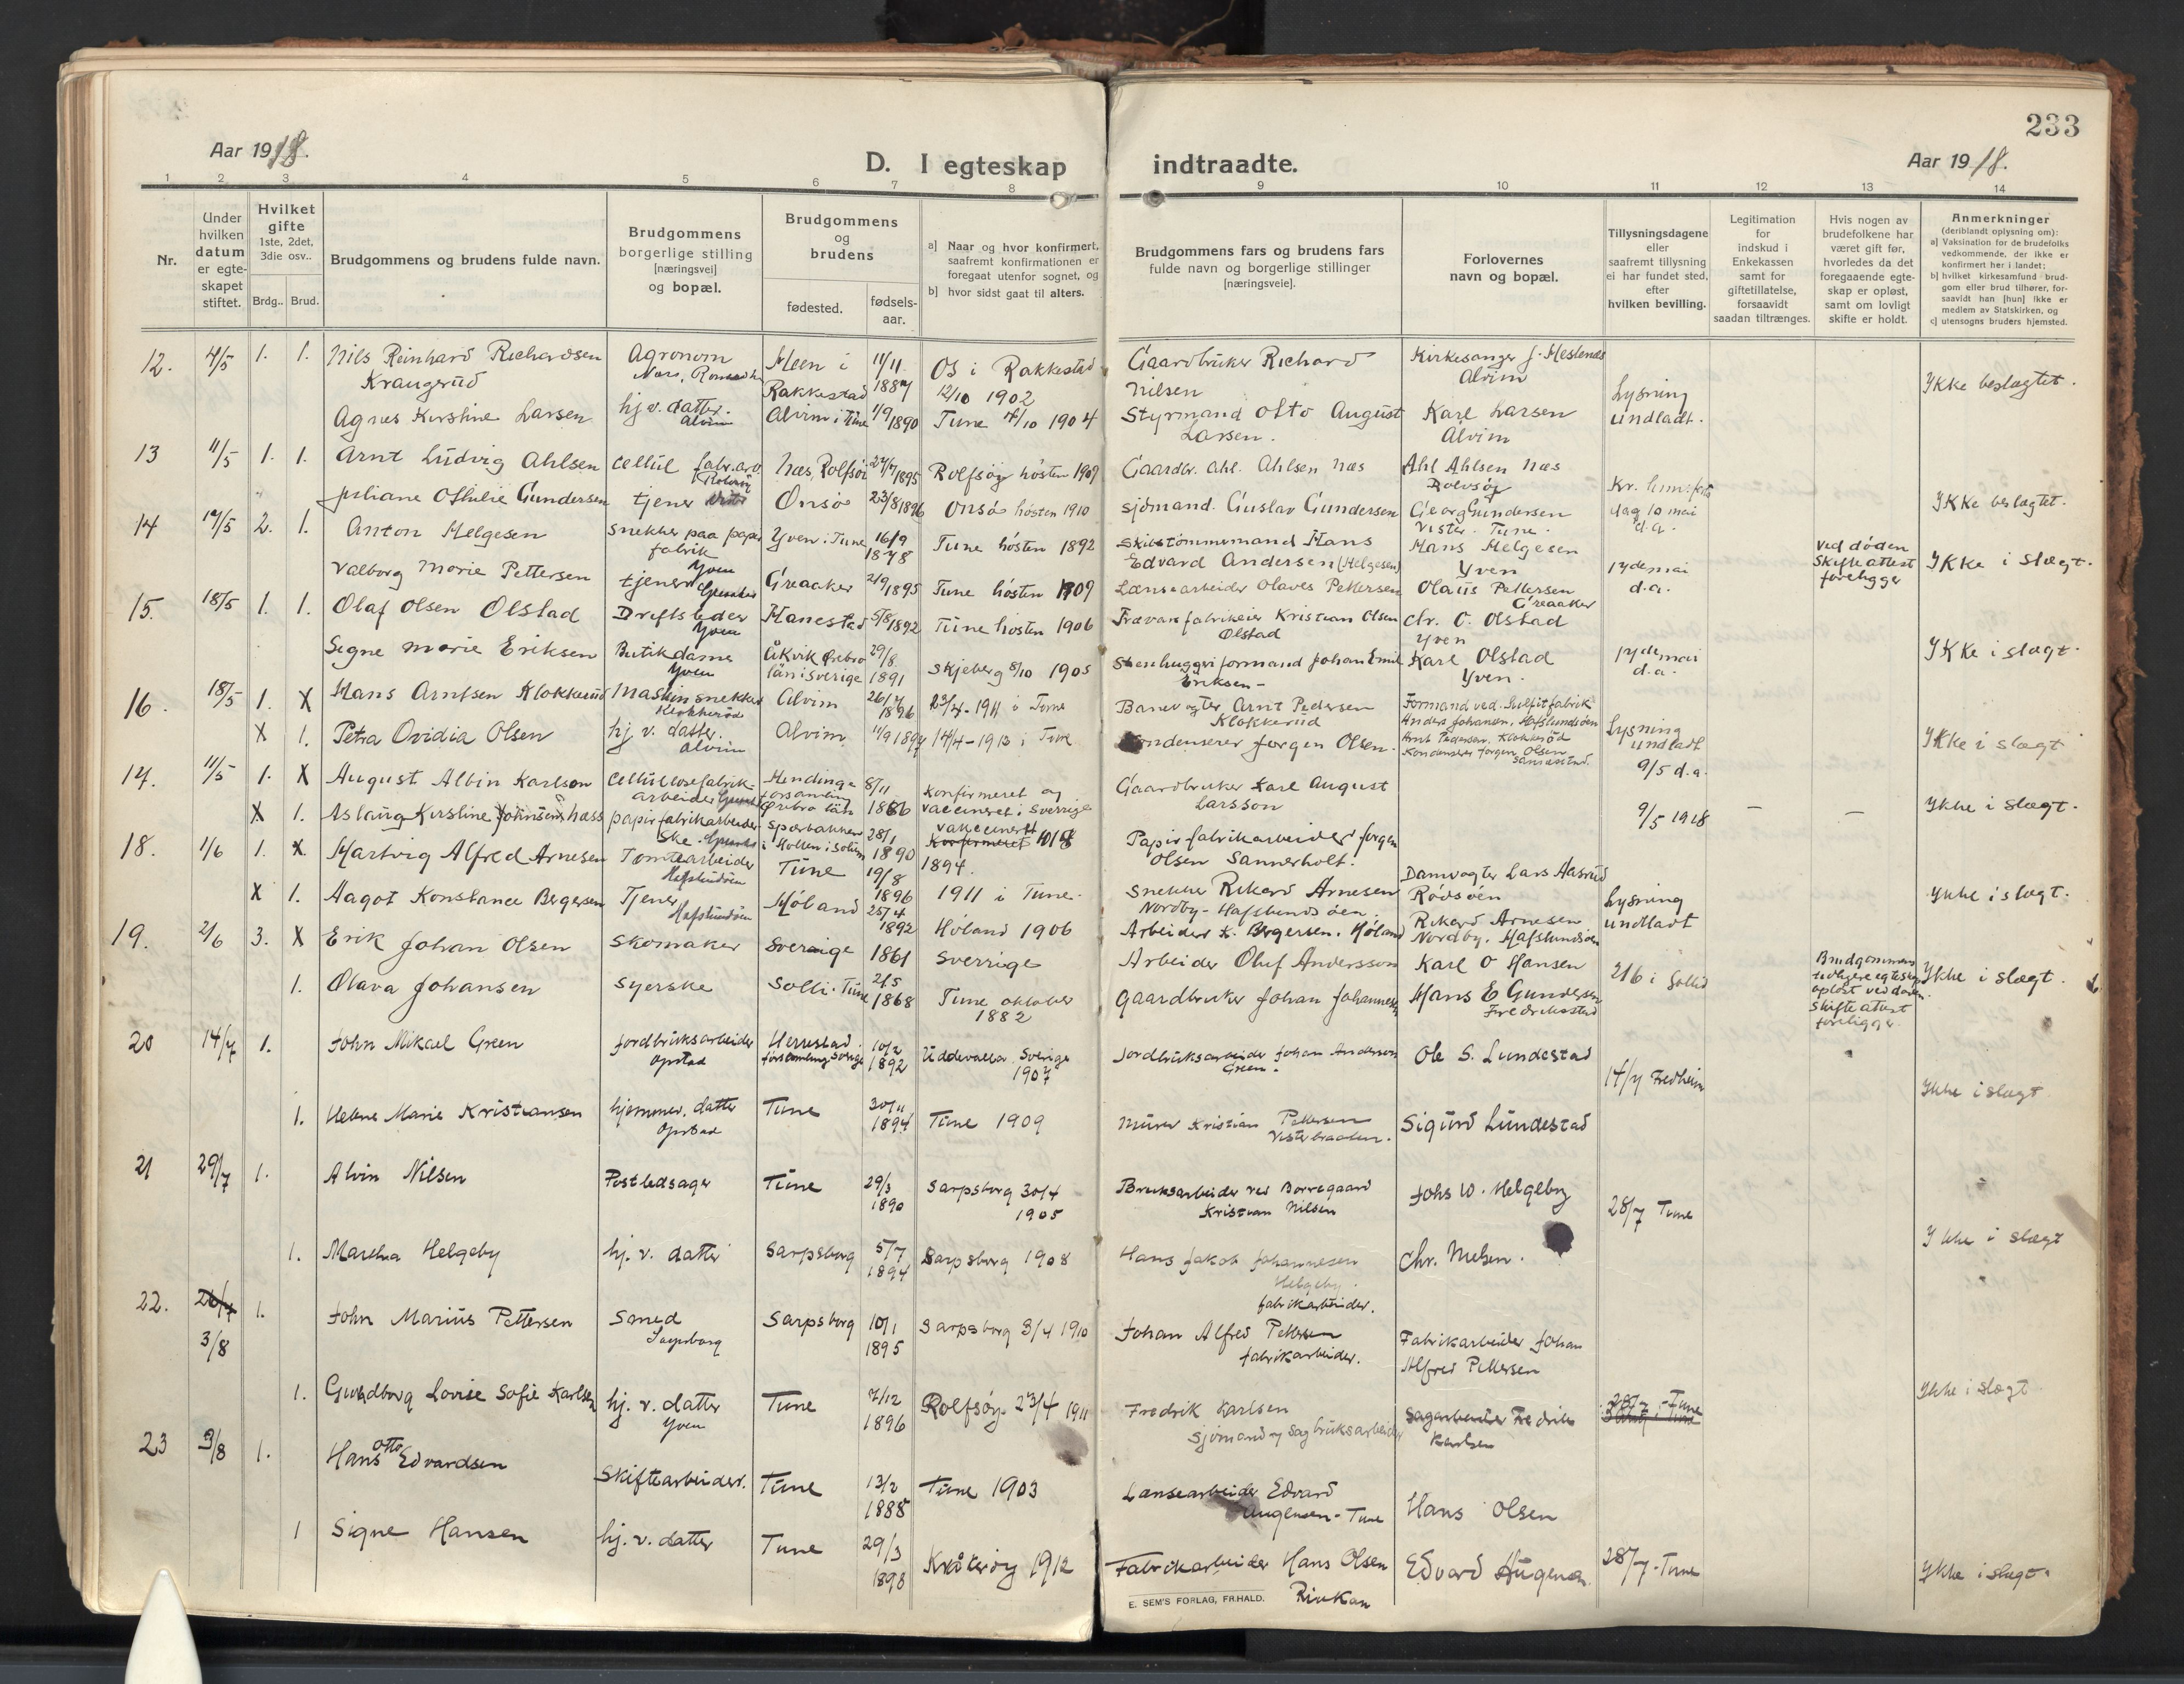 233
Aar 1918.
D. I egteskap indtraadte.
Aar 1918.
1 2 3 4 5 6 7 8 9 10 11 12 13 14
Nr.
Under
hvilken
datum
er egte-
skapet
stiftet.
Hvilket
gifte
1ste, 2det,
3die osv..
Brdg.. Brud.
Brudgommens og brudens fulde navn.
Brudgommens
borgerlige stilling
[næringsvei]
og bopæl.
Brudgommens
og
brudens
fødested.
fødsels-
aar.
a] Naar og hvor konfirmert,
saafremt konfirmationen er
foregaat utenfor sognet, og
b] hvor sidst gaat til alters.
Brudgommens fars og brudens fars
fulde navn og borgerlige stillinger
[næringsveie].
Forlovernes
navn og bopæl.
Tillysningsdagene
eller
saafremt tillysning
ei har fundet sted,
efter
hvilken bevilling.
Legitimation
for
indskud i
Enkekassen
samt for
giftetillatelse,
forsaavidt
saadan tiltrænges.
Hvis nogen av
brudefolkene har
været gift før,
hvorledes da det
foregaaende egte-
skap er opløst,
samt om lovligt
skifte er holdt.
Anmerkninger
(deriblandt oplysning om):
a] Vaksination for de brudefolks
vedkommende, der ikke er
konfirmert her i landet;
b] hvilket kirkesamfund brud-
gom eller brud tilhører, for-
saavidt han [hun] ikke er
medlem av Statskirken, og
c] utensogns bruders hjemsted.
12. 4/5 1. 1. Nils Reinhard Richardsen
Kraugerud
Agronom
Meen i
Rakkestad
11/11
1887
Os i Rakkestad
12/10 1902
Gaardbruker Richard
Nilsen
Kirkesanger J. Meslenes
Alvim
Lysning
undladt.
Ikke beslægtet.
Agnes Kirstine Larsen
hj. v. datter.
Alvim
Alvim i Tune 1/9 1890
Tune 4/10 1904
Styrmand Otto August
Larsen.
Karl Larsen
Alvim
13 11/5 1. 1. Arnt Ludvig Ahlsen
Cellul fabr. arb.
Næs, Rolfsøi 27/7 1895
Rolfsøy høsten 1909
Gaardbr. Ahl. Ahlsen Næs
Ahl Ahlsen Næs
Rolvsøy
dag 10 mai
d.a.
Ikke beslægtet.
Juliane Othilie Gundersen
tjener
Onsø 23/8 1896
Onsø høsten 1910
Sjømand. Gustav Gundersen
Georg Gundersen
Vister. Tune.
14 17/5 2. 1. Anton Helgesen
Snekker paa papir
fabrik
Yven
Yven i Tune 16/9
1878
Tune høsten 1892
Skibstømmermand Hans
Edvard Andersen (Helgesen)
Hans Helgesen
Yven
17de mai
d.a.
Ved døden
Skifteattest
foreligger
Ikke i slægt.
Valborg Marie Pettersen
tjener
Greaaker
Greaaker 21/9 1895
Tune høsten 1909
Lænsearbeider Olaves Pettersen
Olaus Pettersen
Greaaker
15. 18/5 1. 1. Olaf Olsen Olstad
Driftsleder
Yven
Hanestad 5/8 1892
Tune høsten 1906
Trævarefabrikeier Kristian Olsen
Olstad
Chr. O. Olstad
Yven
17de mai
d.a.
Ikke i slægt.
Signe Marie Eriksen
Butikdame
Yven
län i Sverige
29/8
1891
Skjeberg 8/10 1905
Stenhuggeriformand Johan Emil
Eriksen
Karl Olstad
Yven.
16. 18/5 1. X Hans Arntsen Klokkerud
Maskinsnekker
Klokkerød
Alvim 26/7
1896
23/4-1911 i Tune
Banevogter Arnt Pedersen
Klokkerud
Formand ved. Sulfitfabrik
Anders Johansen, Hafslundsøen
Arnt Pedersen, Klokkerød
Lysning
undladt
9/5 d.a.
Ikke i slægt
X 1. Petra Ovidia Olsen
hj. v. datter.
Alvim
Alvim. 11/9 1894
14/4-1912 i Tune
Kondenserer Jørgen Olsen.
Kondenserer Jørgen Olsen
17. 11/5 1. X August Albin Karlson
Cellulosefabrik-
arbeider
församling
Örebro län
8/11
1886
Konfirmeret og
vaccineret i Sverrige
Gaardbruker Karl August
Larsson
9/5 1918 — —
Ikke i slægt.
X 1. Aslaug Kirstine Næss
papirfabrikarbeider
28/1
1890
vakcinert
1894.
Papirfabrikarbeider Jørgen
Olsen Sannerholt.
18. 1/6 1. X. Hartvig Alfred Arnesen
Tomtearbeider
Hafslundsøen
Tune 19/8
1896
1911 i Tune.
Snekker Rikard Arnesen
Nordby - Hafslundsøen.
Damvogter Lars Aasrud
Rødsøen
Lysning
undladt
Ikke i slægt.
X 1. Aagot Konstance Bergersen
Tjener
Hafslundsøen
Høland 25/4
1892
Høland 1906
Arbeider K. Bergersen. Høland
Rikard Arnesen
Nordby. Hafslundsøen
19. 2/6 3. X Erik Johan Olsen
Skomaker
Sverrige 1861
Sverrige
Arbeider Oluf Andersson
Karl O Hansen
2/6 i Solli
Brudgommens
tidligere egteskap
opløst ved døden.
Skifteattest
foreligger
Ikke i slægt.
1. Olava Johansen
Syerske
Solli. Tune 21/5
1868
Tune oktober
1882
Gaardbruker Johan Johannesen
Hans E Gundersen
Fredrikstad
20 14/7 1. John Mikael Green
Jordbruksarbeider
Opstad
Herrestad.
församling Sverige
10/2
1892
Uddevalla. Sverige
1907
Jordbruksarbeider Johan Anderson
Green.
Ole S. Lundestad
14/7 Fredheim
Ikke i slægt.
1. Helene Marie Kristiansen
hjemmev. datter
Opstad
Tune 30/11
1894
Tune 1909
Murer Kristian Pettersen
Visterbraaten.
Sigurd Lundestad
21 29/7 1. Alvin Nilsen
Postledsager
Tune 29/3
1890
Sarpsborg 30/4
1905
Bruksarbeider ved Borregaard
Kristian Nilsen
Johs W. Helgeby
28/7 Tune
Ikke i slægt
1. Martha Helgeby
hj. v. datter
Sarpsborg 5/7
1894
Sarpsborg 1908
Hans Jakob Johannesen
Helgeby.
fabrikarbeider.
Chr. Nielsen.
22. 26/7
3/8
1. John Marius Pettersen
Smed
Sarpsborg
Sarpsborg 10/1
1895
Sarpsborg 3/4 1910
Johan Alfred Pettersen
fabrikarbeider.
Fabrikarbeider Johan
Alfred Pettersen
1. Gundborg Lovise Sofie Karlsen
hj. v. datter
Yven
Tune 7/12
1896
Rolfsøy 23/4 1911
Fredrik Karlsen
sjømand og sagbruksarbeider
Sagarbeider Fredrik
Karlsen
28/7 - Tune
Ikke i slægt
23 3/8 1. Hans Otto Edvardsen
Skiftearbeider.
Tune 13/2
1885
Tune 1903
Lænsearbeider Edvard
Hans Olsen
28/7 - Tune
Ikke i slægt.
1 Signe Hansen
hj. v. datter
Tune 29/3
1898
Kråkerøy 1912
Fabrikarbeider Hans Olsen
Rinkan
Edvard
E. SEM'S FORLAG, FR.HALD.